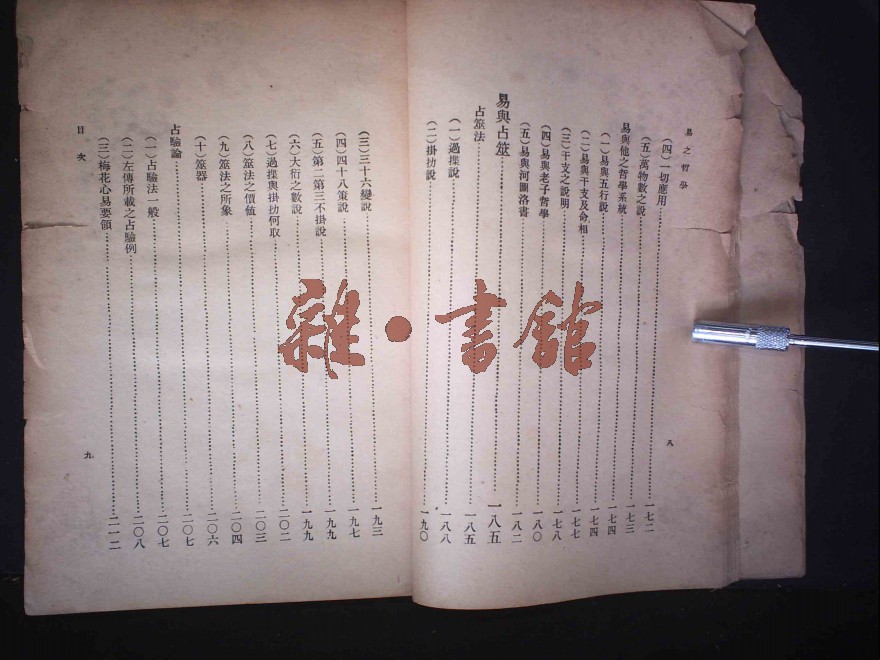 易之哲學
(四)一切應用……一七二
(五)萬物數之說……一七三
易與他之哲學系統……一七四
(一)易與五行說……一七四
(二)易與干支及命相……一七七
(三)干支之說明……一七八
(四)易與老子哲學……一八〇
(五)易與河圖洛書……一八二
易與占筮……一八五
占筮法……一八五
(一)過揲說……一八八
(二)掛扐說……一九〇
八
(三)三十六變說……一九三
(四)四十八策說……一九七
(五)第二第三不掛說……一九九
(六)大衍之數說……一九九
(七)過揲與掛扐何取……二〇二
(八)筮法之價值……二〇三
(九)筮法之所象……二〇四
(十)筮器……二〇六
占驗論……二〇七
(一)占驗法一般……二〇七
(二)左傳所載之占驗例……二〇八
(三)梅花心易要領……二一二
目次
九
雜·書館